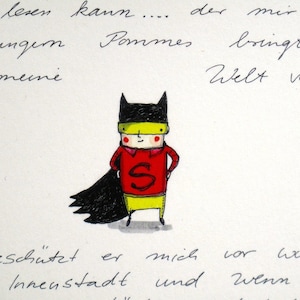 lesen kann.... der mir
ungern Pommes bring
meine Welt v
S
eschützt er mich vor wo
Innenstadt und wenn